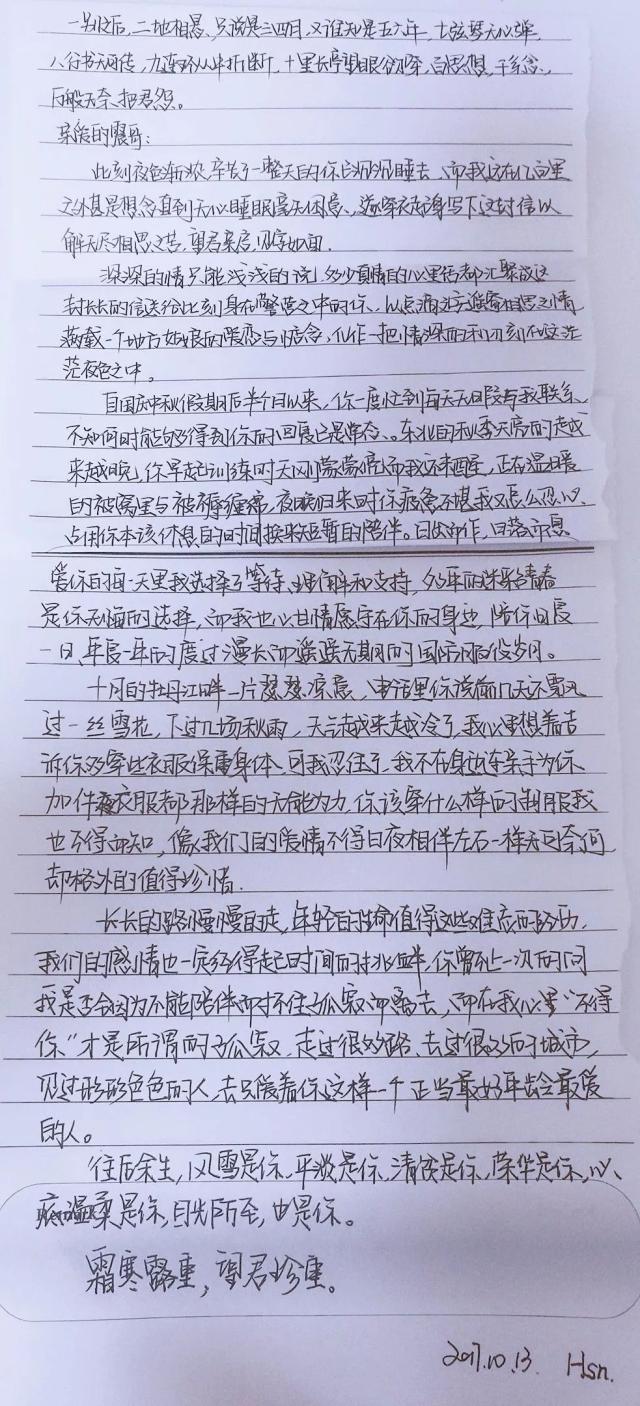 一别之后，二地相思，只说是三四月，又谁知是五六年，七弦琴无心弹，
八行书无可传，九连环从中折断，十里长亭望眼欲穿，百思想，千系念，
万般无奈把君怨。
亲爱的震哥：
此刻夜色渐浓，辛苦了一整天的你已沉沉睡去，而我远在几百里
之外甚是想念直到无心睡眠毫无困意，遂穿衣起身写下这封信以
解无尽相思之苦，望君亲启，见字如面．
深深的情只能浅浅的说，多少真情的心里话都汇聚成这
封长长的信送给此刻身在警营之中的你，以点滴文字遥寄相思之情
满载一个地方姑娘的爱恋与惦念，化作一把情深的利刃刻在这茫
茫夜色之中。
自国庆中秋假期后半个月以来，你一度忙到每天无暇与我联系，
不知何时能够得到你的回复已是常态。东北的秋季天亮的越
来越晚，你早起训练时天刚蒙蒙亮而我还未醒，正在温暖
的被窝里与被褥缠绵，夜晚归来时你疲惫不堪我又怎么忍心
占用你本该休息的时间换来短暂的陪伴。日出而作，日落而息
爱你的每一天里我选择了等待、理解和支持，多年的迷彩青春
是你无悔的选择，而我也心甘情愿守在你的身边，陪你日复
一日、年复一年的度过漫长而遥遥无期的国防服役岁月。
十月的牡丹江畔一片瑟瑟凉意，电话里你说前几天不零飘
过一丝雪花，下过几场秋雨，天气越来越冷了，我心里想着告
诉你多穿些衣服保重身体，可我忍住了，我不在身边连亲手为你
加件衣服都那样的无能为力，你该穿什么样的制服我
也不得而知，像我们的爱情不得日夜相伴左右一样无可奈何
却格外的值得珍惜．
长长的路慢慢的走，年轻的生命值得这些难忘的经历，
我们的感情也一定经得起时间的挑衅，你曾不止一次的问
我是否会因为不能陪伴而扛不住孤寂而离去，而在我心里“不得
你”才是所谓的孤寂，走过很多路、去过很多的城市，
见过形形色色的人，去只爱着你这样一个正当最好年龄最爱
的人。
往后余生，风雪是你，平淡是你，清贫是你，荣华是你，心
底温柔是你，目光所至，也是你。
霜寒露重，望君珍重。
2017.10.13. Hsn.